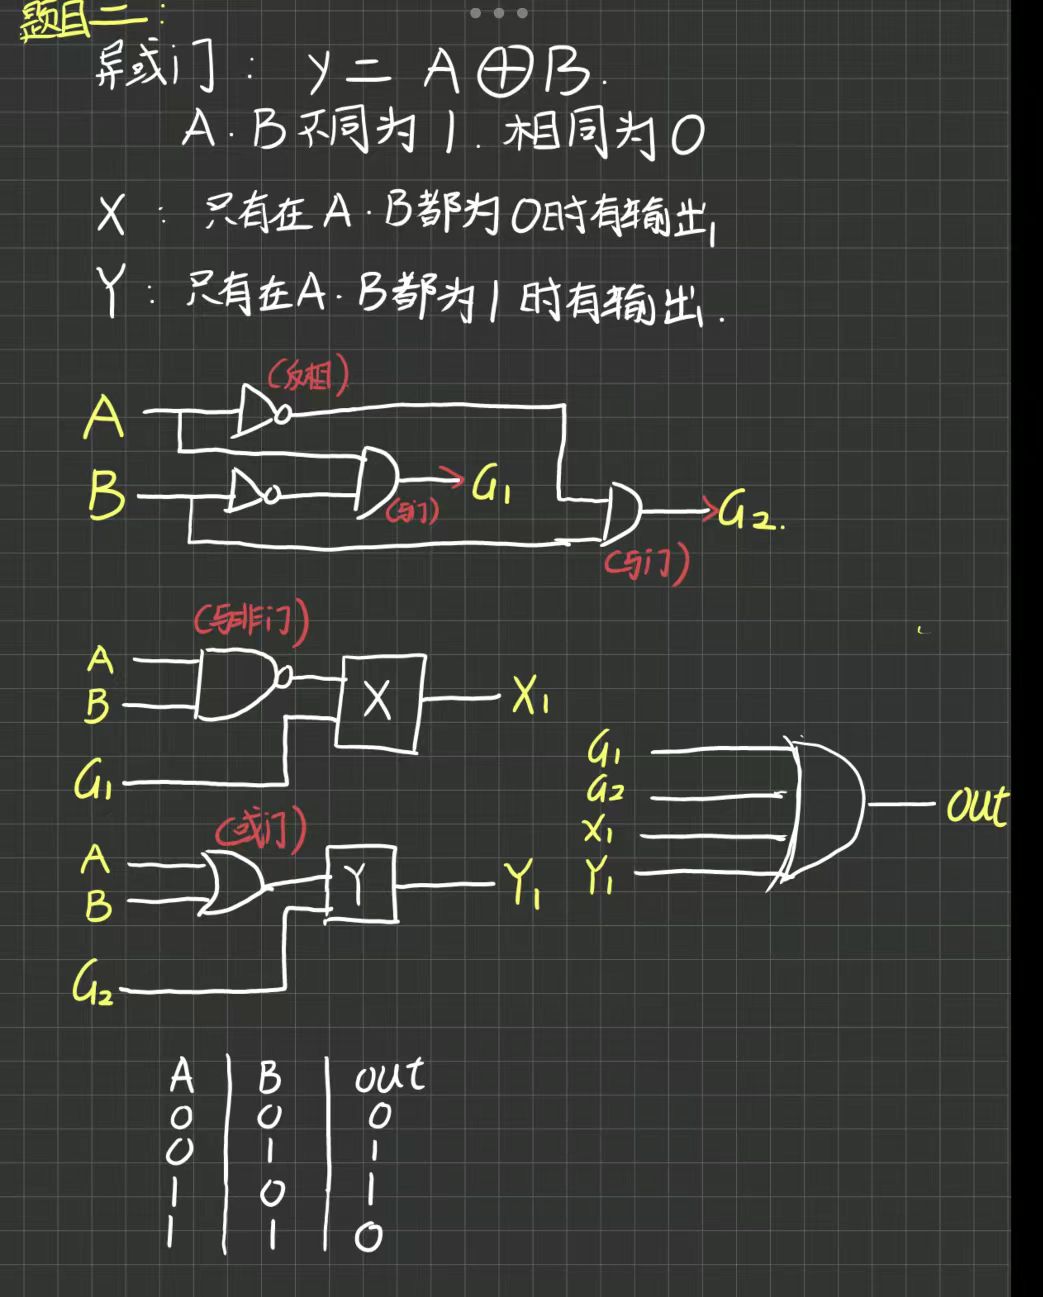 题目二：
异或门： y = A ⊕ B.
A.B不同为1.相同为0
X ： 只有在A.B都为0时有输出,
Y ： 只有在A.B都为1时有输出.
(反相)
A
B
G₁
(与门)
G₂.
(与门)
(与非门)
A
B
X
X₁
G₁
(或门)
A
B
Y
Y₁
G₂
G₁
G₂
X₁
Y₁
out
A B out
0 0 0
0 1 1
1 0 1
1 1 0